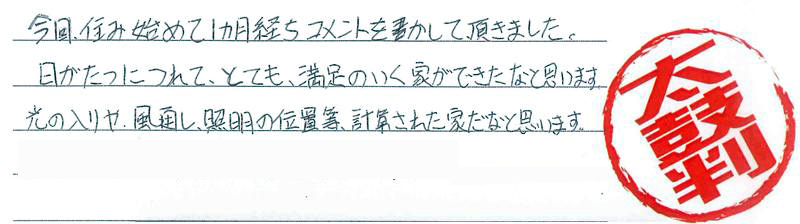 今回、住み始めて1カ月経ちコメントを書かして頂きました。
日がたつにつれて、とても、満足のいく家ができたなと思います。
光の入りや、風通し、照明の位置等、計算された家だなと思います。
太鼓判